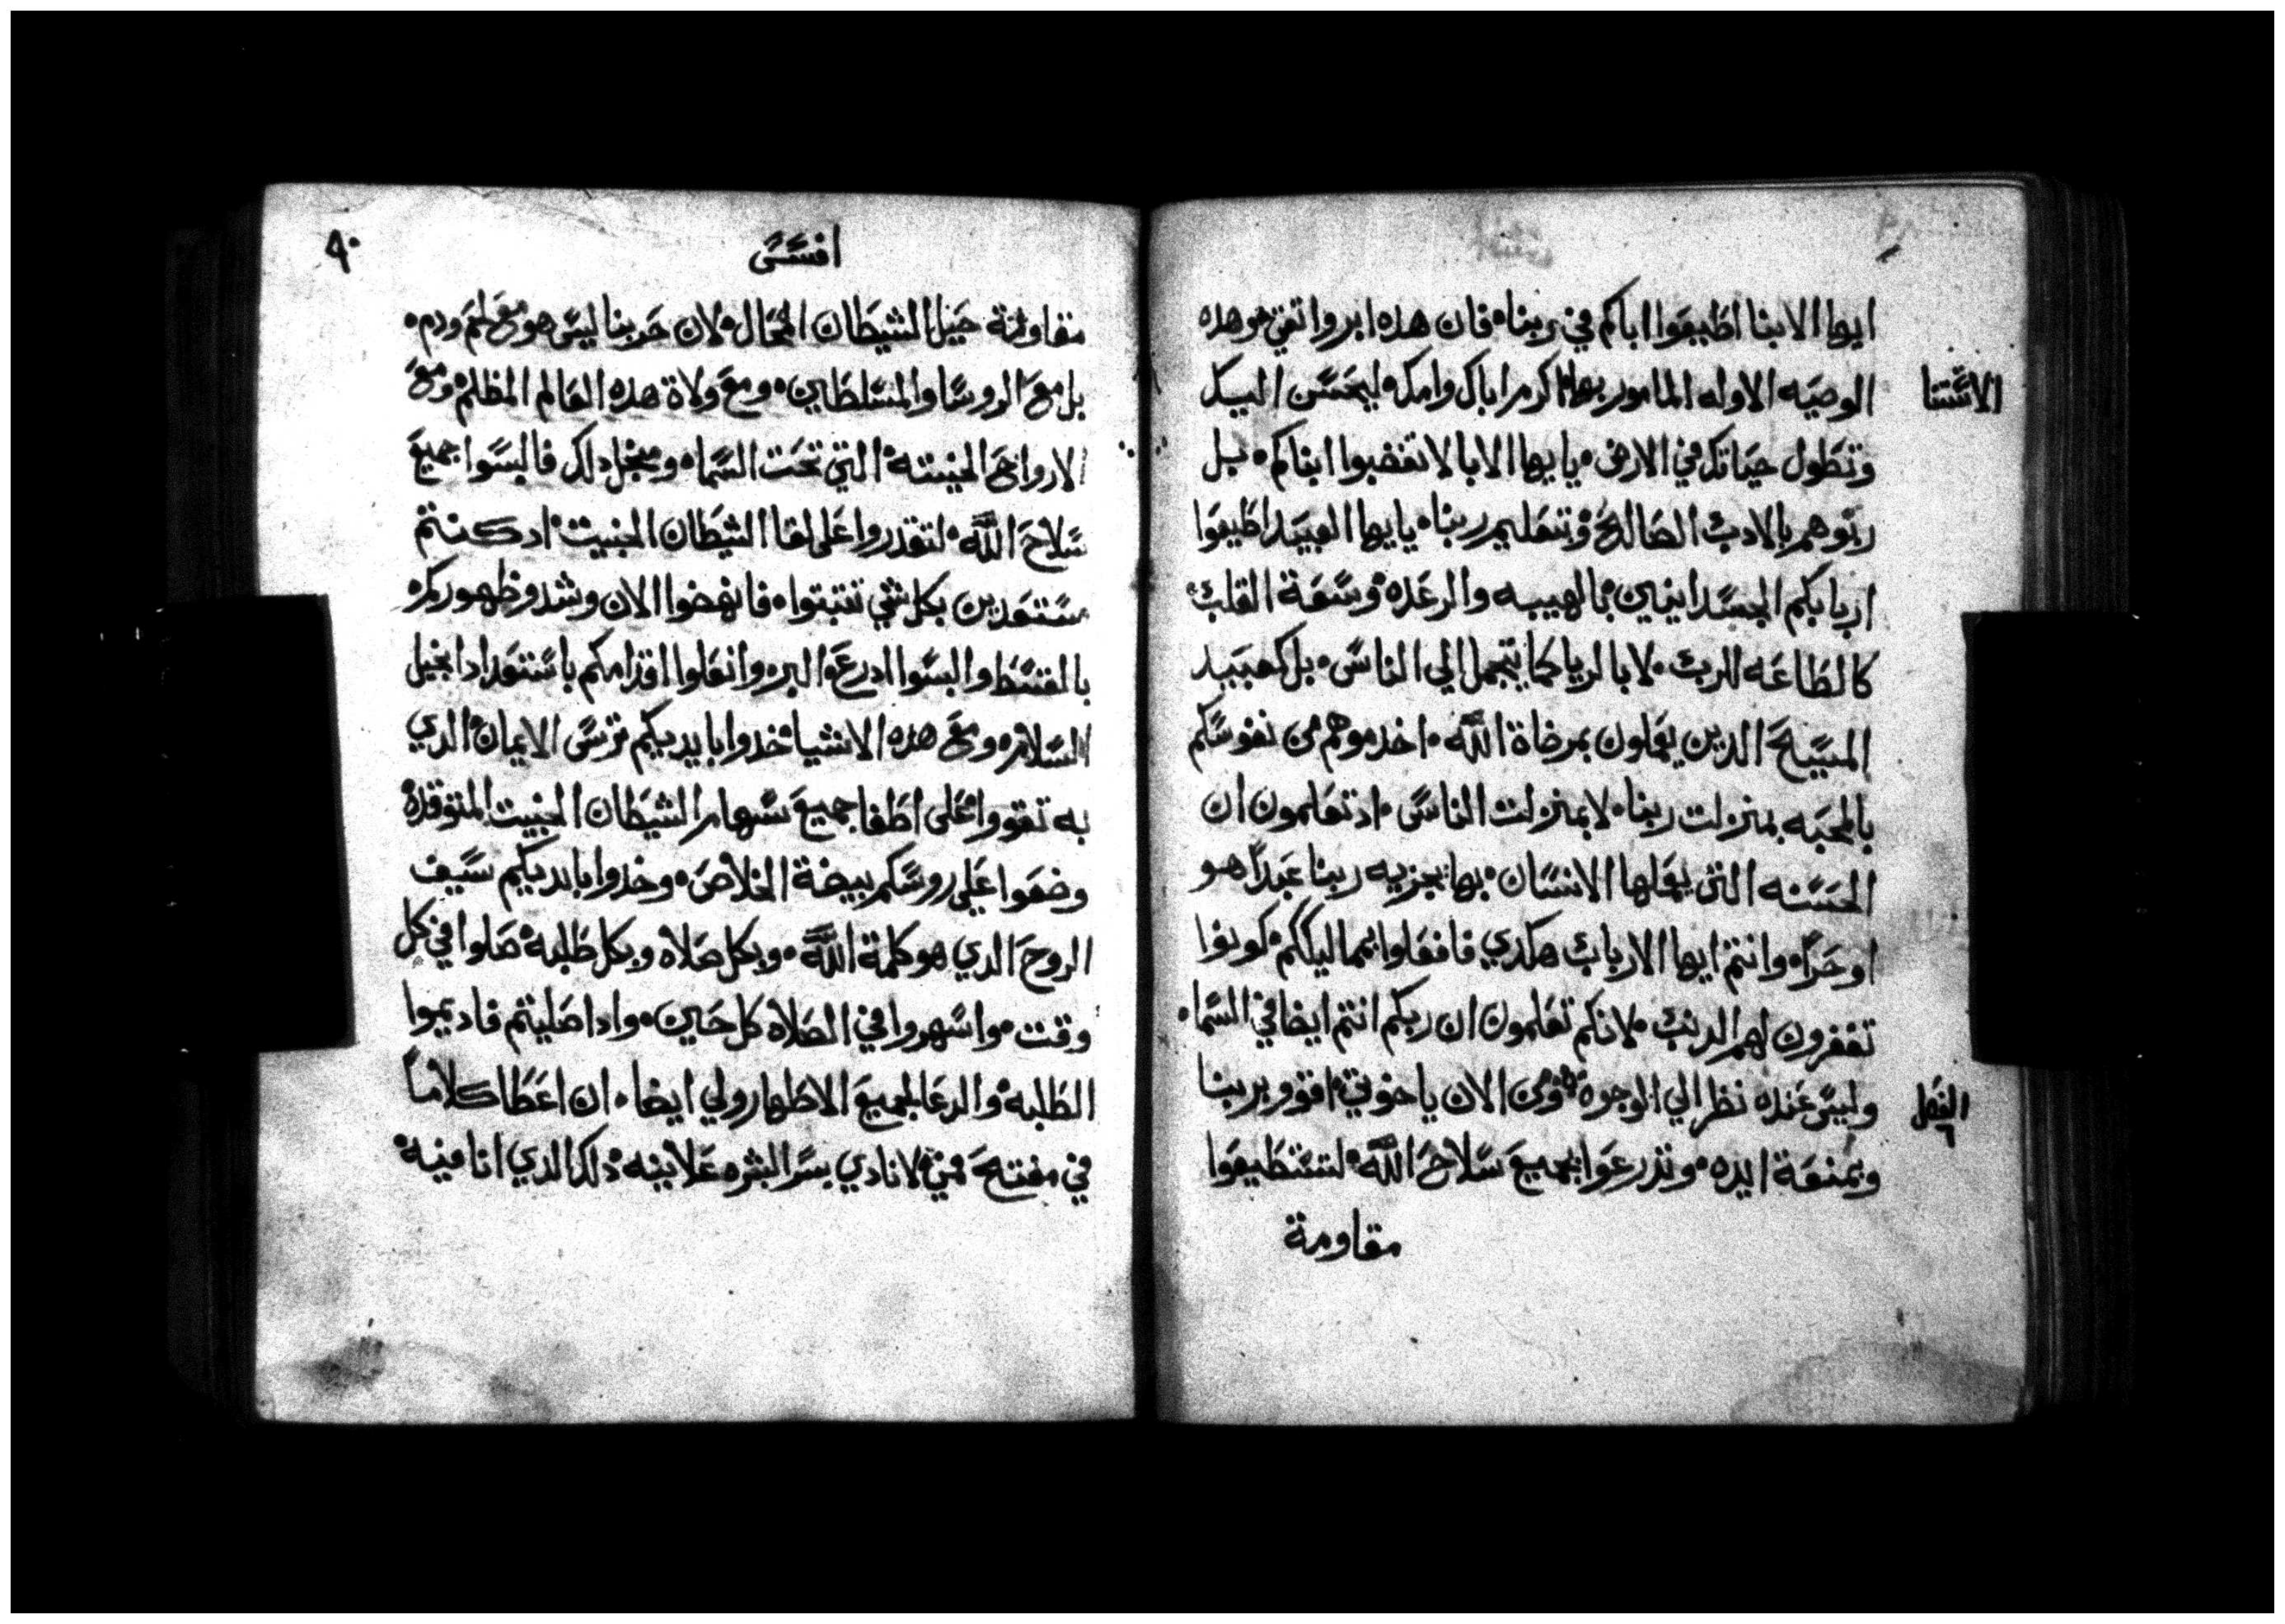 ايها الابنا اطيعوا اباكم في ربنا فان هذه ابر واتقي هو هده
الاستتنا
الوصيه الاوله المامور بها اكرم اباك وامك ليحسن اليك
وتطول حياتك في الارض يايها الابا لا تغضبوا ابناكم بل
ربوهم بالادب الصالح وتتعليم ربنا يايها العبيد اطيعوا
اربابكم الجسدانيين بالهيبه والرعده وسعة القلب
كالطاعه للرب لا بالريا كما يتجمل الي الناس بل كعبيد
المسيح الدين يعملون بمرضاة الله اخدموهم من نفوسكم
بالمحبه بمنزلت ربنا لا بمنزلت الناس اد تعلمون ان
الحسنه التي يعملها الانسان بها يجزيه ربنا عبداً هو
او حراً وانتم ايها الارباب هكدي فافعلوا بمماليككم كونوا
تغفرون لهم الدنب لانكم تعلمون ان ربكم انتم ايضا في السما
وليس عنده نظر الي الوجوه ومن الان ياخوتي اقوو بربنا
الفصل ٦
وبمنعة ايده وتدرعوا بجميع سلاح الله لتستطيعوا
مقاومة
افسس
٩٠
مقاومة حيل الشيطان المحال لان حربنا ليس هو مع لحم ودم
بل مع الروسا والمسلطين ومع ولاة هده العالم المظلم ومع
الارواح الخبيته التي تحت السما ومنجل دلك فالبسوا جميع
سلاح الله لتقدروا على لقا الشيطان الخبيت اد كنتم
مستعدين بكل شي تتبتوا فانهضوا الان وشدو ظهوركم
بالقسط والبسوا ادرعة البر وانعلوا اقدامكم باستعداد انجيل
السلام ومع هده الاشيا خدوا بايديكم ترس الايمان الدي
به تقووا على اطفا جميع سهام الشيطان الخبيت المتوقده
وضعوا علي روسكم بيضة الخلاص وخدوا بايديكم سيف
الروح الدي هو كلمة الله وبكل صلاه وبكل طلبه صلوا في كل
وقت واسهروا في الصلاه كل حين وادا صليتم فاديموا
الطلبه والدعا لجميع الاطهار ولي ايضا ان اعطا كلاماً
في مفتح فمي لانادي بسر البشره علانيه دلك الدي انا فيه